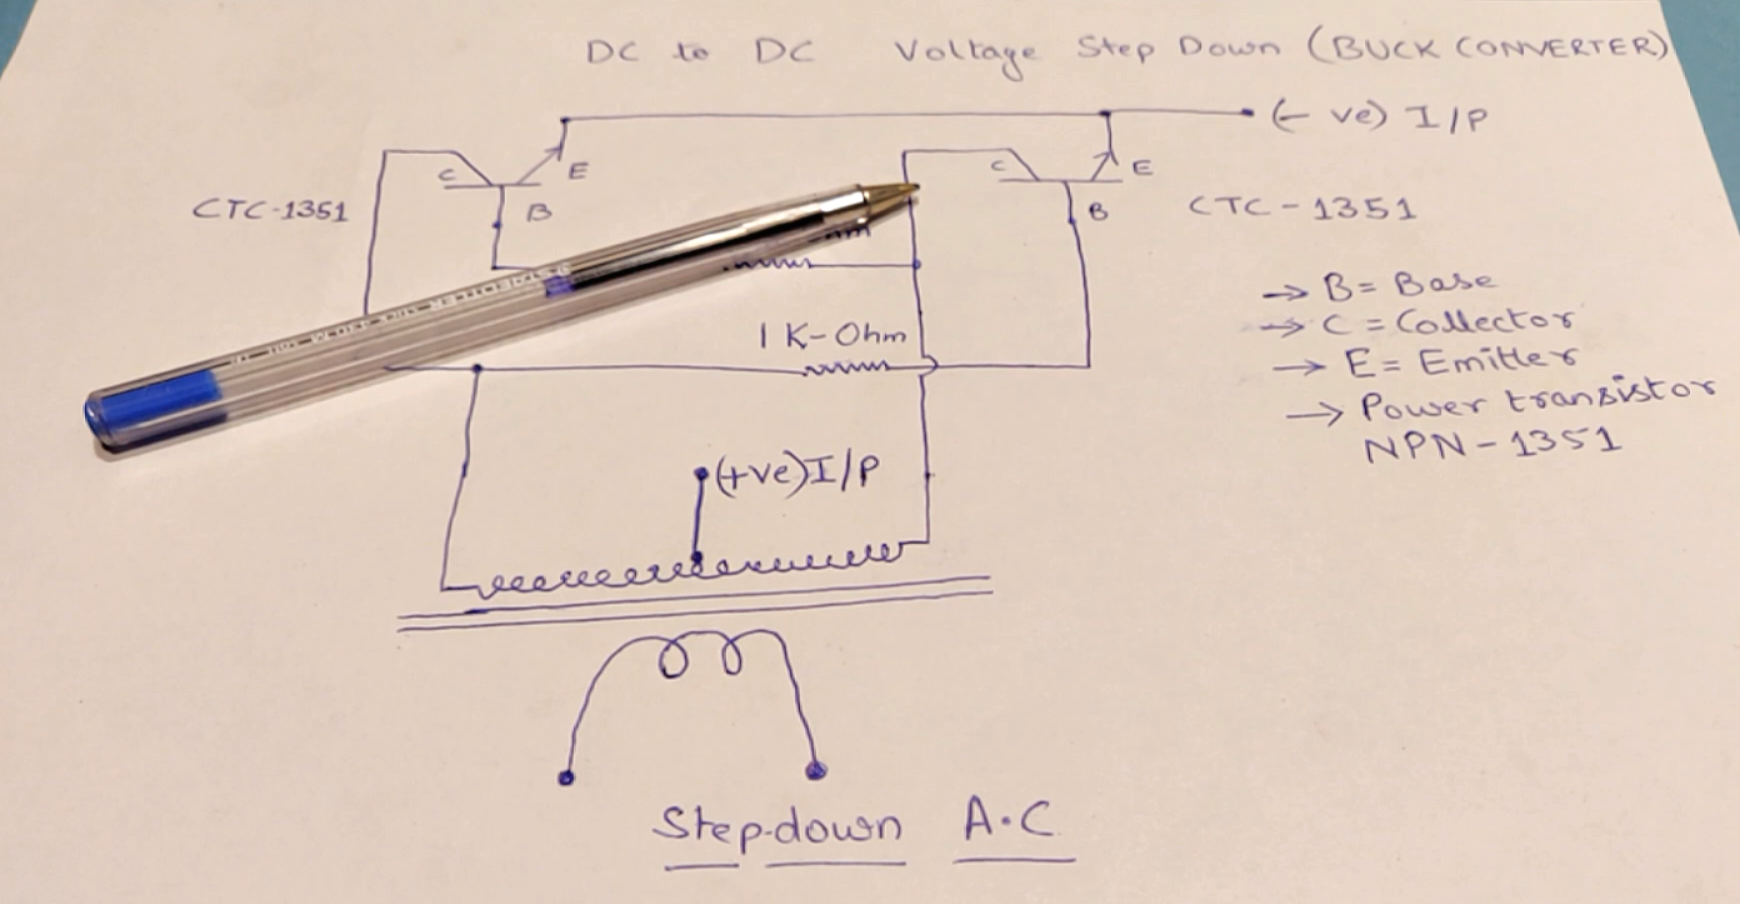 DC to DC Voltage Step Down (BUCK CONVERTER)
(- ve) I/P
C E
B
CTC-1351
C E
B
CTC-1351
→ B= Base
→ C = Collector
→ E= Emitter
→ Power transistor
NPN-1351
1 K-Ohm
(+ve) I/P
Step-down A.C